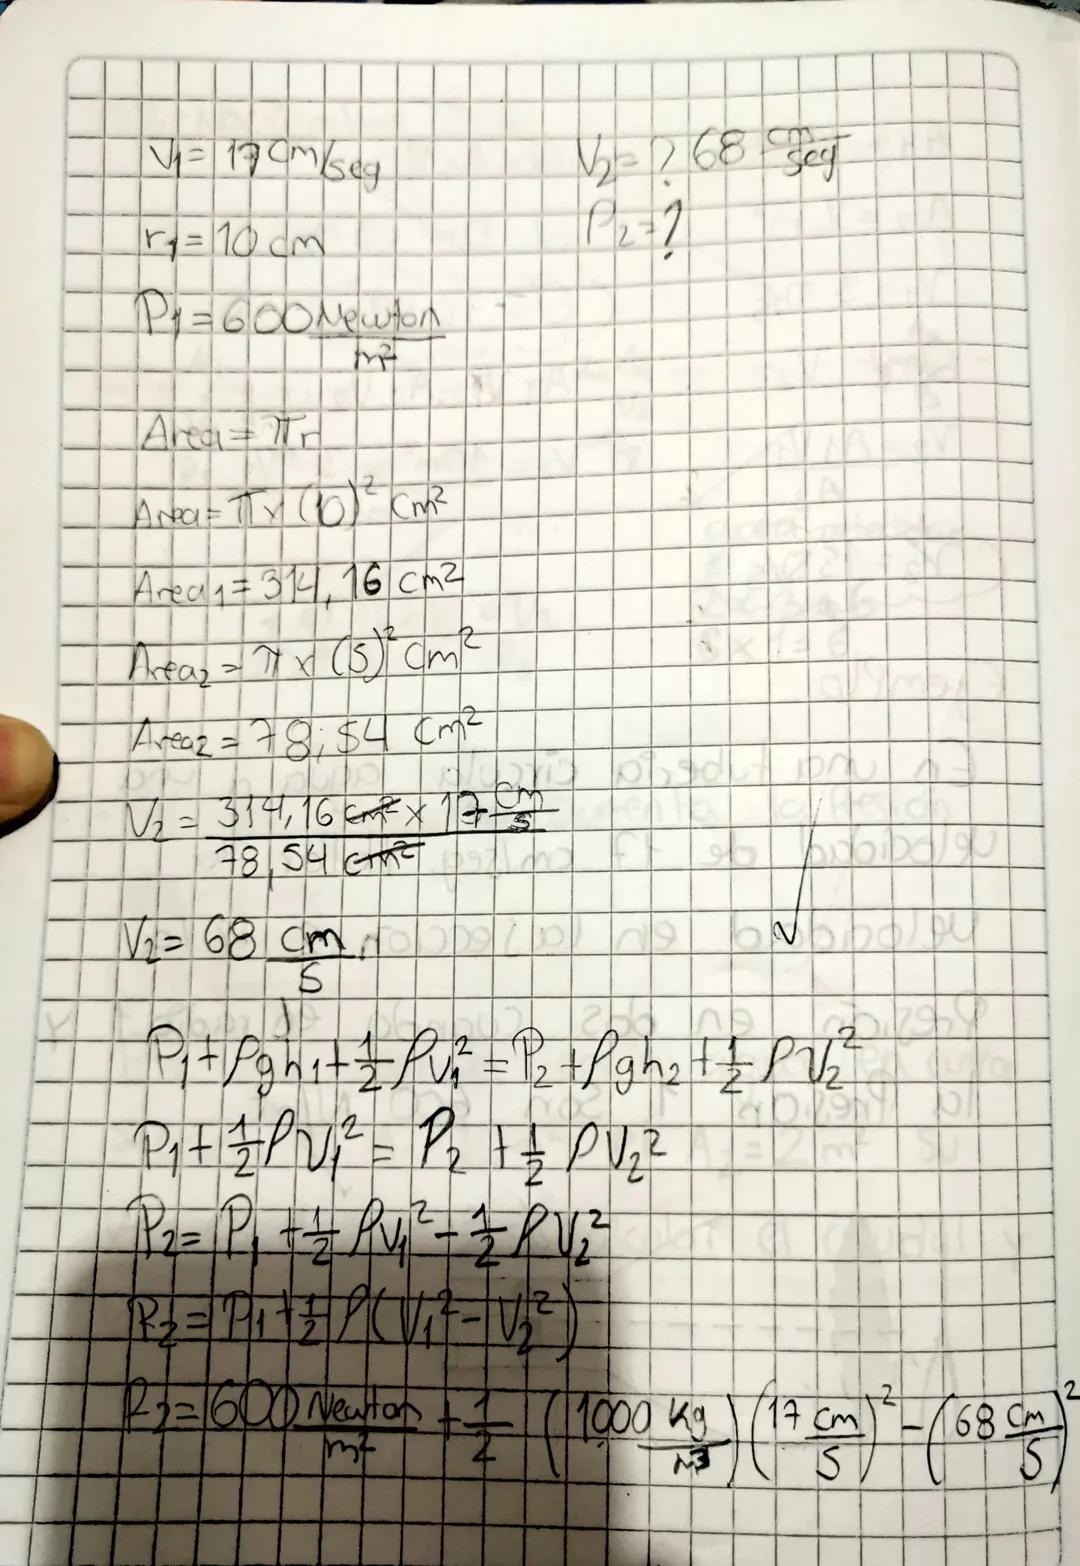 V₁ = 17 cm/seg V₂ = ? 68 cm/seg
r₁ = 10 cm P₂ = ?
P₁ = 600 Newton/m²
Area₁ = πr
Area = π x (10)² cm²
Area₁ = 314,16 cm²
Area₂ = π x (5)² cm²
Area₂ = 78,54 cm²
V₂ = 314,16 cm² x 17 cm/s
78,54 cm²
V₂ = 68 cm/s
P₁ + ρgh₁ + 1/2 ρv₁² = P₂ + ρgh₂ + 1/2 ρV₂²
P₁ + 1/2 ρV₁² = P₂ + 1/2 ρV₂²
P₂ = P₁ + 1/2 ρv₁² - 1/2 ρV₂²
P₂ = P₁ + 1/2 ρ(V₁² - V₂²)
P₂ = 600 Newton/m² + 1/2 (1000 Kg/m³)(17 cm/s)² - (68 cm/s)²